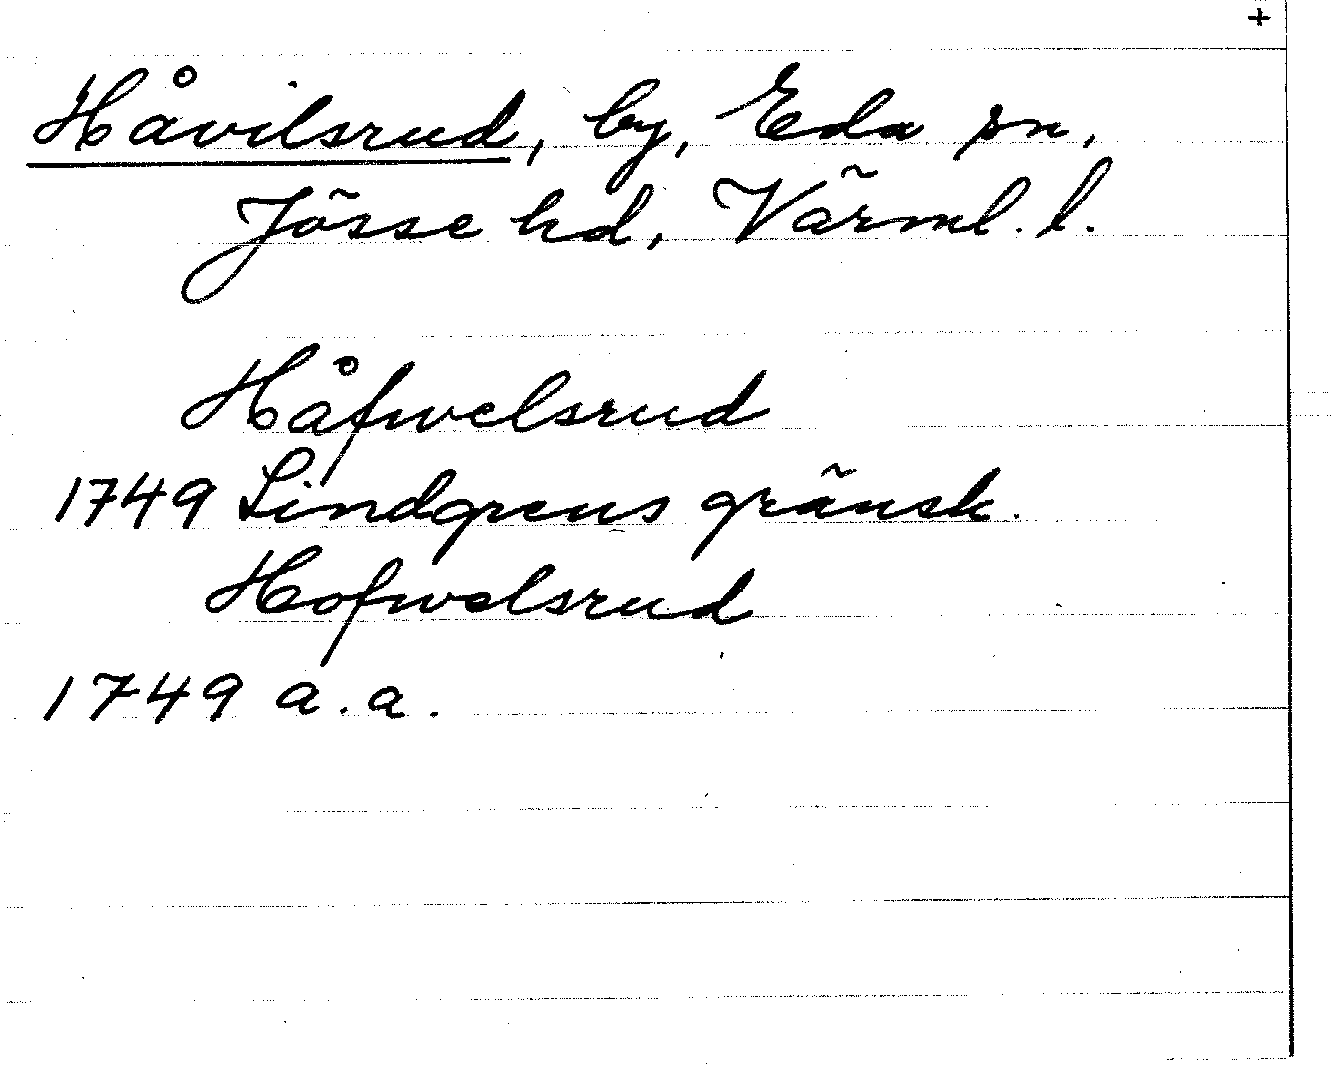 +
Håvilsrud, by, Eda sn,
Jösse hd, Värml. l.
Håfwelsrud
1749 Lindgrens gränsk.
Hofwelsrud
1749 a.a.